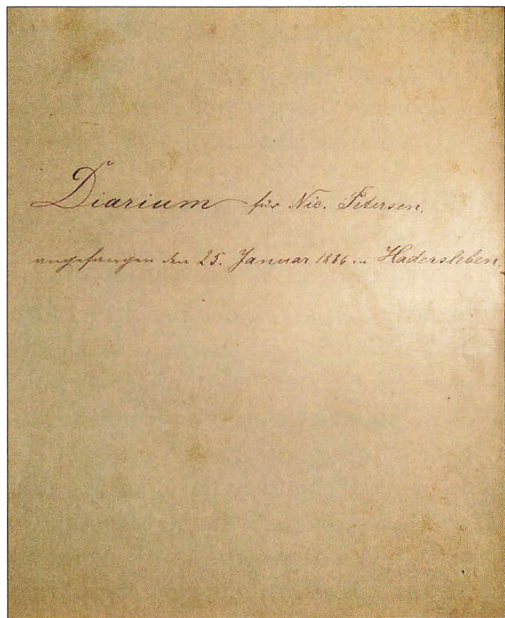 Diarium für Nic. Petersen.
angefangen den 25. Januar 1886 in Hadersleben.